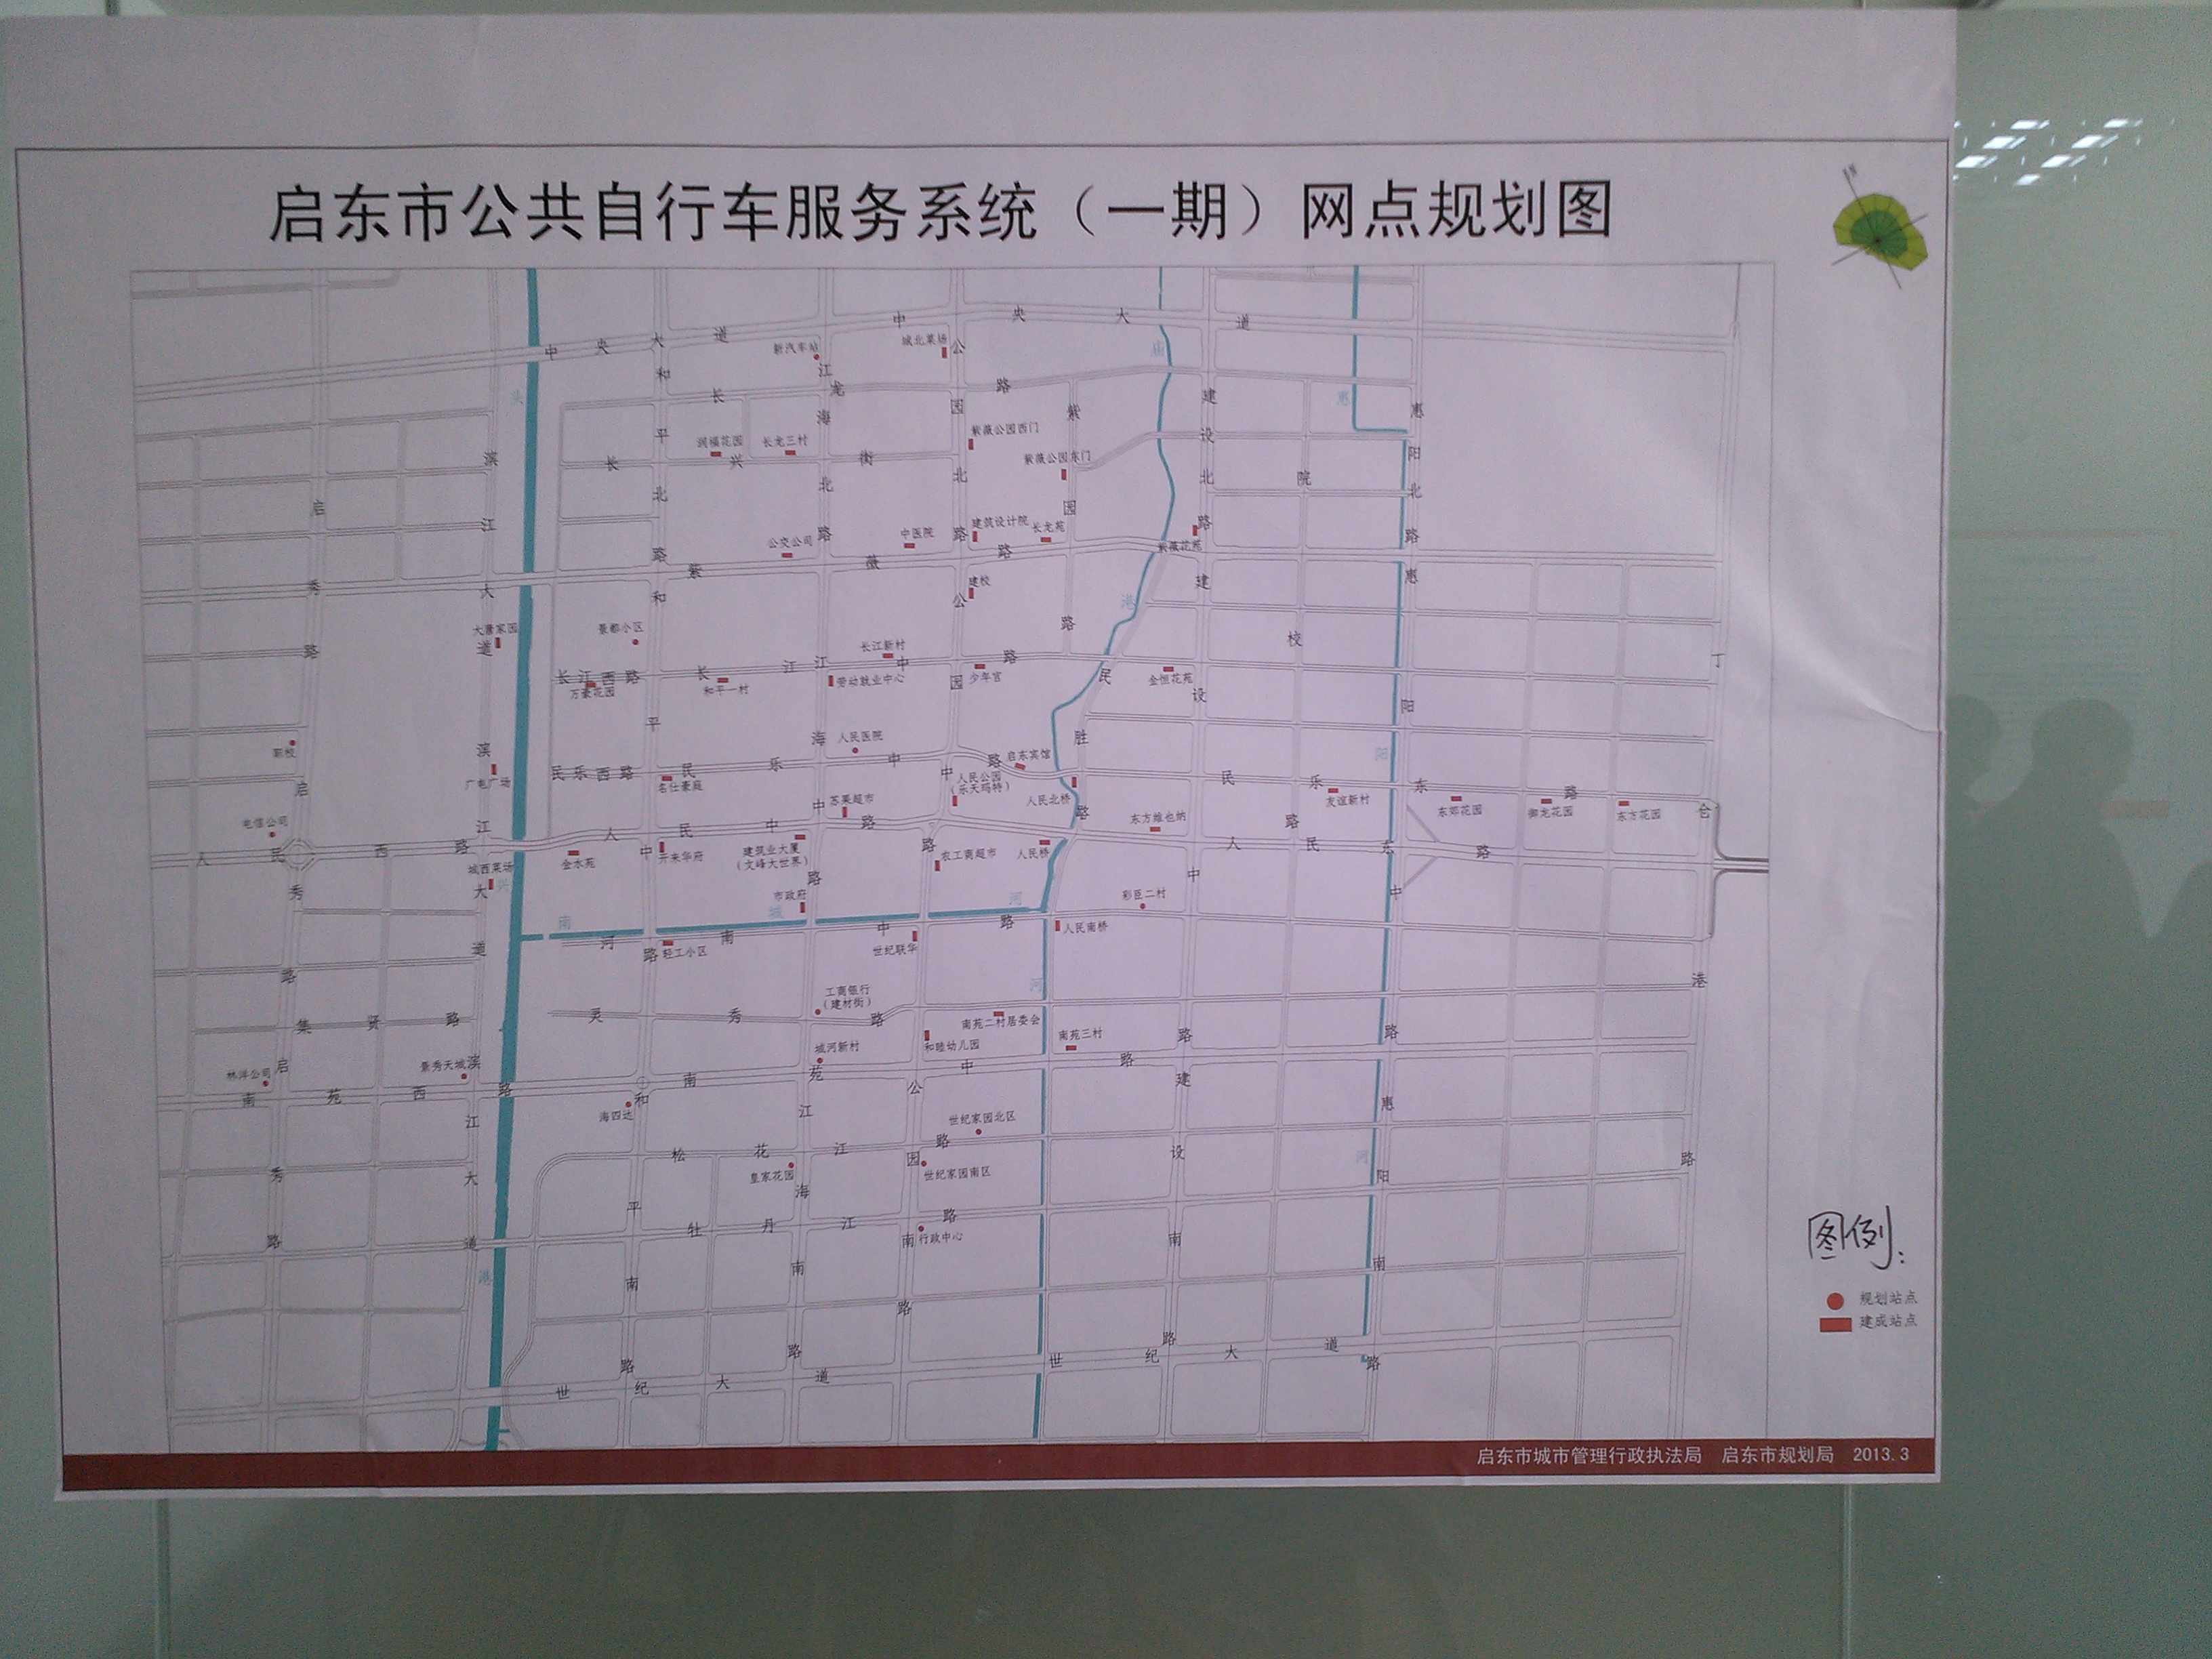 启东市公共自行车服务系统（一期）网点规划图
N
中央大道
中央大道
新汽车站
城北菜场
长龙路
紫薇公园西门
润福花园
长龙三村
紫薇公园东门
长兴街
建筑设计院
长龙苑
中医院
公交公司
紫薇花苑
紫薇路
建校
大唐家园
景都小区
长江新村
长江西路
长江中路
万豪花园
和平一村
劳动就业中心
少年宫
金恒花苑
职校
人民医院
启东宾馆
民乐西路
民乐中路
民乐东路
广电广场
名仕豪庭
人民公园
（乐天玛特）
人民北桥
友谊新村
东郊花园
御龙花园
东方花园
苏果超市
电信公司
东方维也纳
人民西路
人民中路
人民东路
金水苑
开来华府
建筑业大厦
（文峰大世界）
农工商超市
人民桥
城西菜场
市政府
彩臣二村
南城河
河南中路
轻工小区
世纪联华
人民南桥
工商银行
（建材街）
灵秀路
集贤路
南苑二村居委会
南苑三村
城河新村
和睦幼儿园
林洋公司
景秀天城
南苑西路
南苑中路
海四达
世纪家园北区
松花江路
皇家花园
世纪家园南区
牡丹江路
行政中心
世纪大道
世纪大道
启秀路
启秀路
启秀路
滨江大道
滨江大道
滨江大道
和平北路
和平中路
和平南路
江海北路
江海中路
江海南路
公园北路
公园中路
公园南路
紫园路
民胜路
建设北路
建设中路
建设南路
院校路
惠阳北路
惠阳中路
惠阳南路
丁仓港路
惠阳河
图例：
规划站点
建成站点
启东市城市管理行政执法局 启东市规划局 2013.3